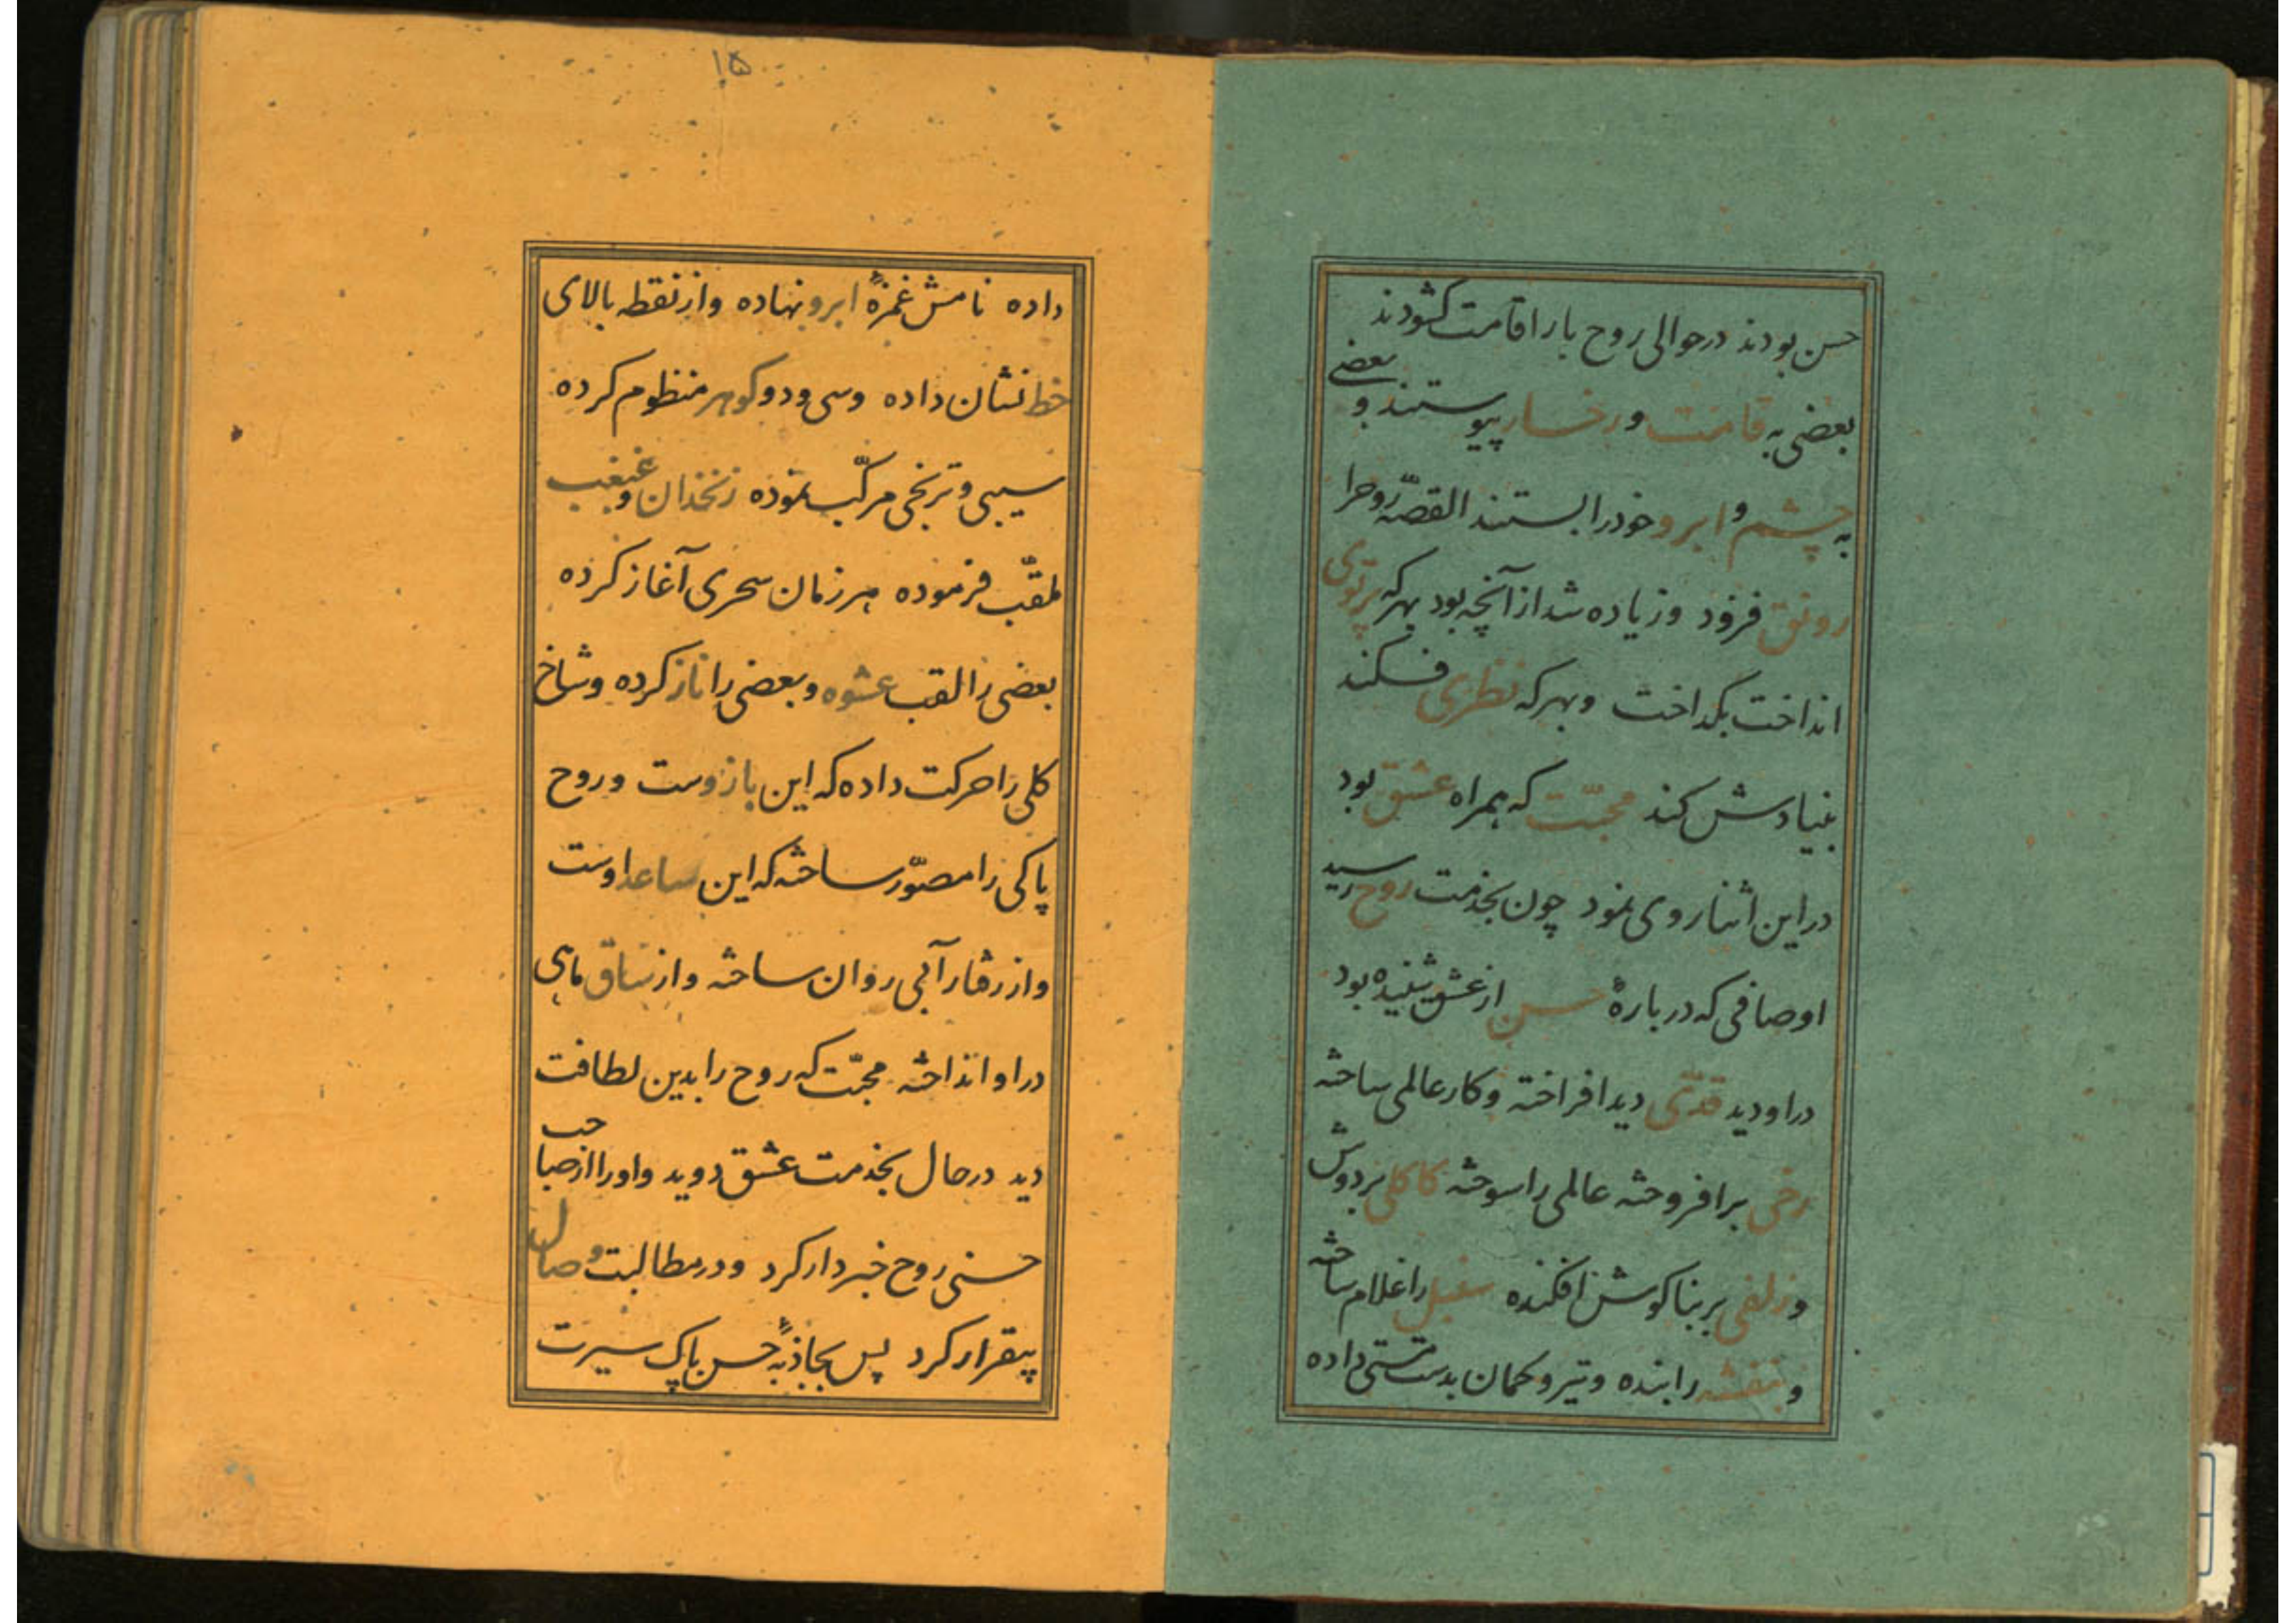 حسن بودند در حوالی روح بار اقامت کشودند
بعضی به قامت و رخسار پیوستند و بعضی
به چشم و ابرو خود را بستند القصّه روح را
رونق فزود و زیاده شد از آنچه بود بهر که پرتوی
انداخت بگداخت و بهر که نظری فکند
بنیادش کند محبّت که همراه عشق بود
در این اثنا روی نمود چون بخدمت روح رسید
اوصافی که در بارهٔ حسن از عشق شنیده بود
در او دید قدّی دید افراخته و کار عالمی ساخته
رخی برافروخته عالمی را سوخته کاکلی بر دوش
و زلفی بر بناکوش افکنده سنبل را غلام ساخته
و بنفشه را بنده و تیر و کمان بدست مستی داده
۱۵
داده نامش غمزهٔ ابرو نهاده و از نقطه بالای
خط نشان داده و سی و دو کوهر منظوم کرده
سیبی و ترنجی مرکّب نموده زنخدان و غبغب
ملقّب فرموده هر زمان سحری آغاز کرده
بعضی را لقب عشوه و بعضی را ناز کرده و شاخ
کلی را حرکت داده که این بازوست و روح
پاکی را مصوّر ساخته که این ساعد اوست
و از رفتار آبی روان ساخته و از ساق ماهی
در او انداخته محبّت که روح را بدین لطافت
دید در حال بخدمت عشق دوید و او را از صاحب
حسنی روح خبردار کرد و در مطالبت وصالش
بیقرار کرد پس بجاذبهٔ حسن پاک سیرت